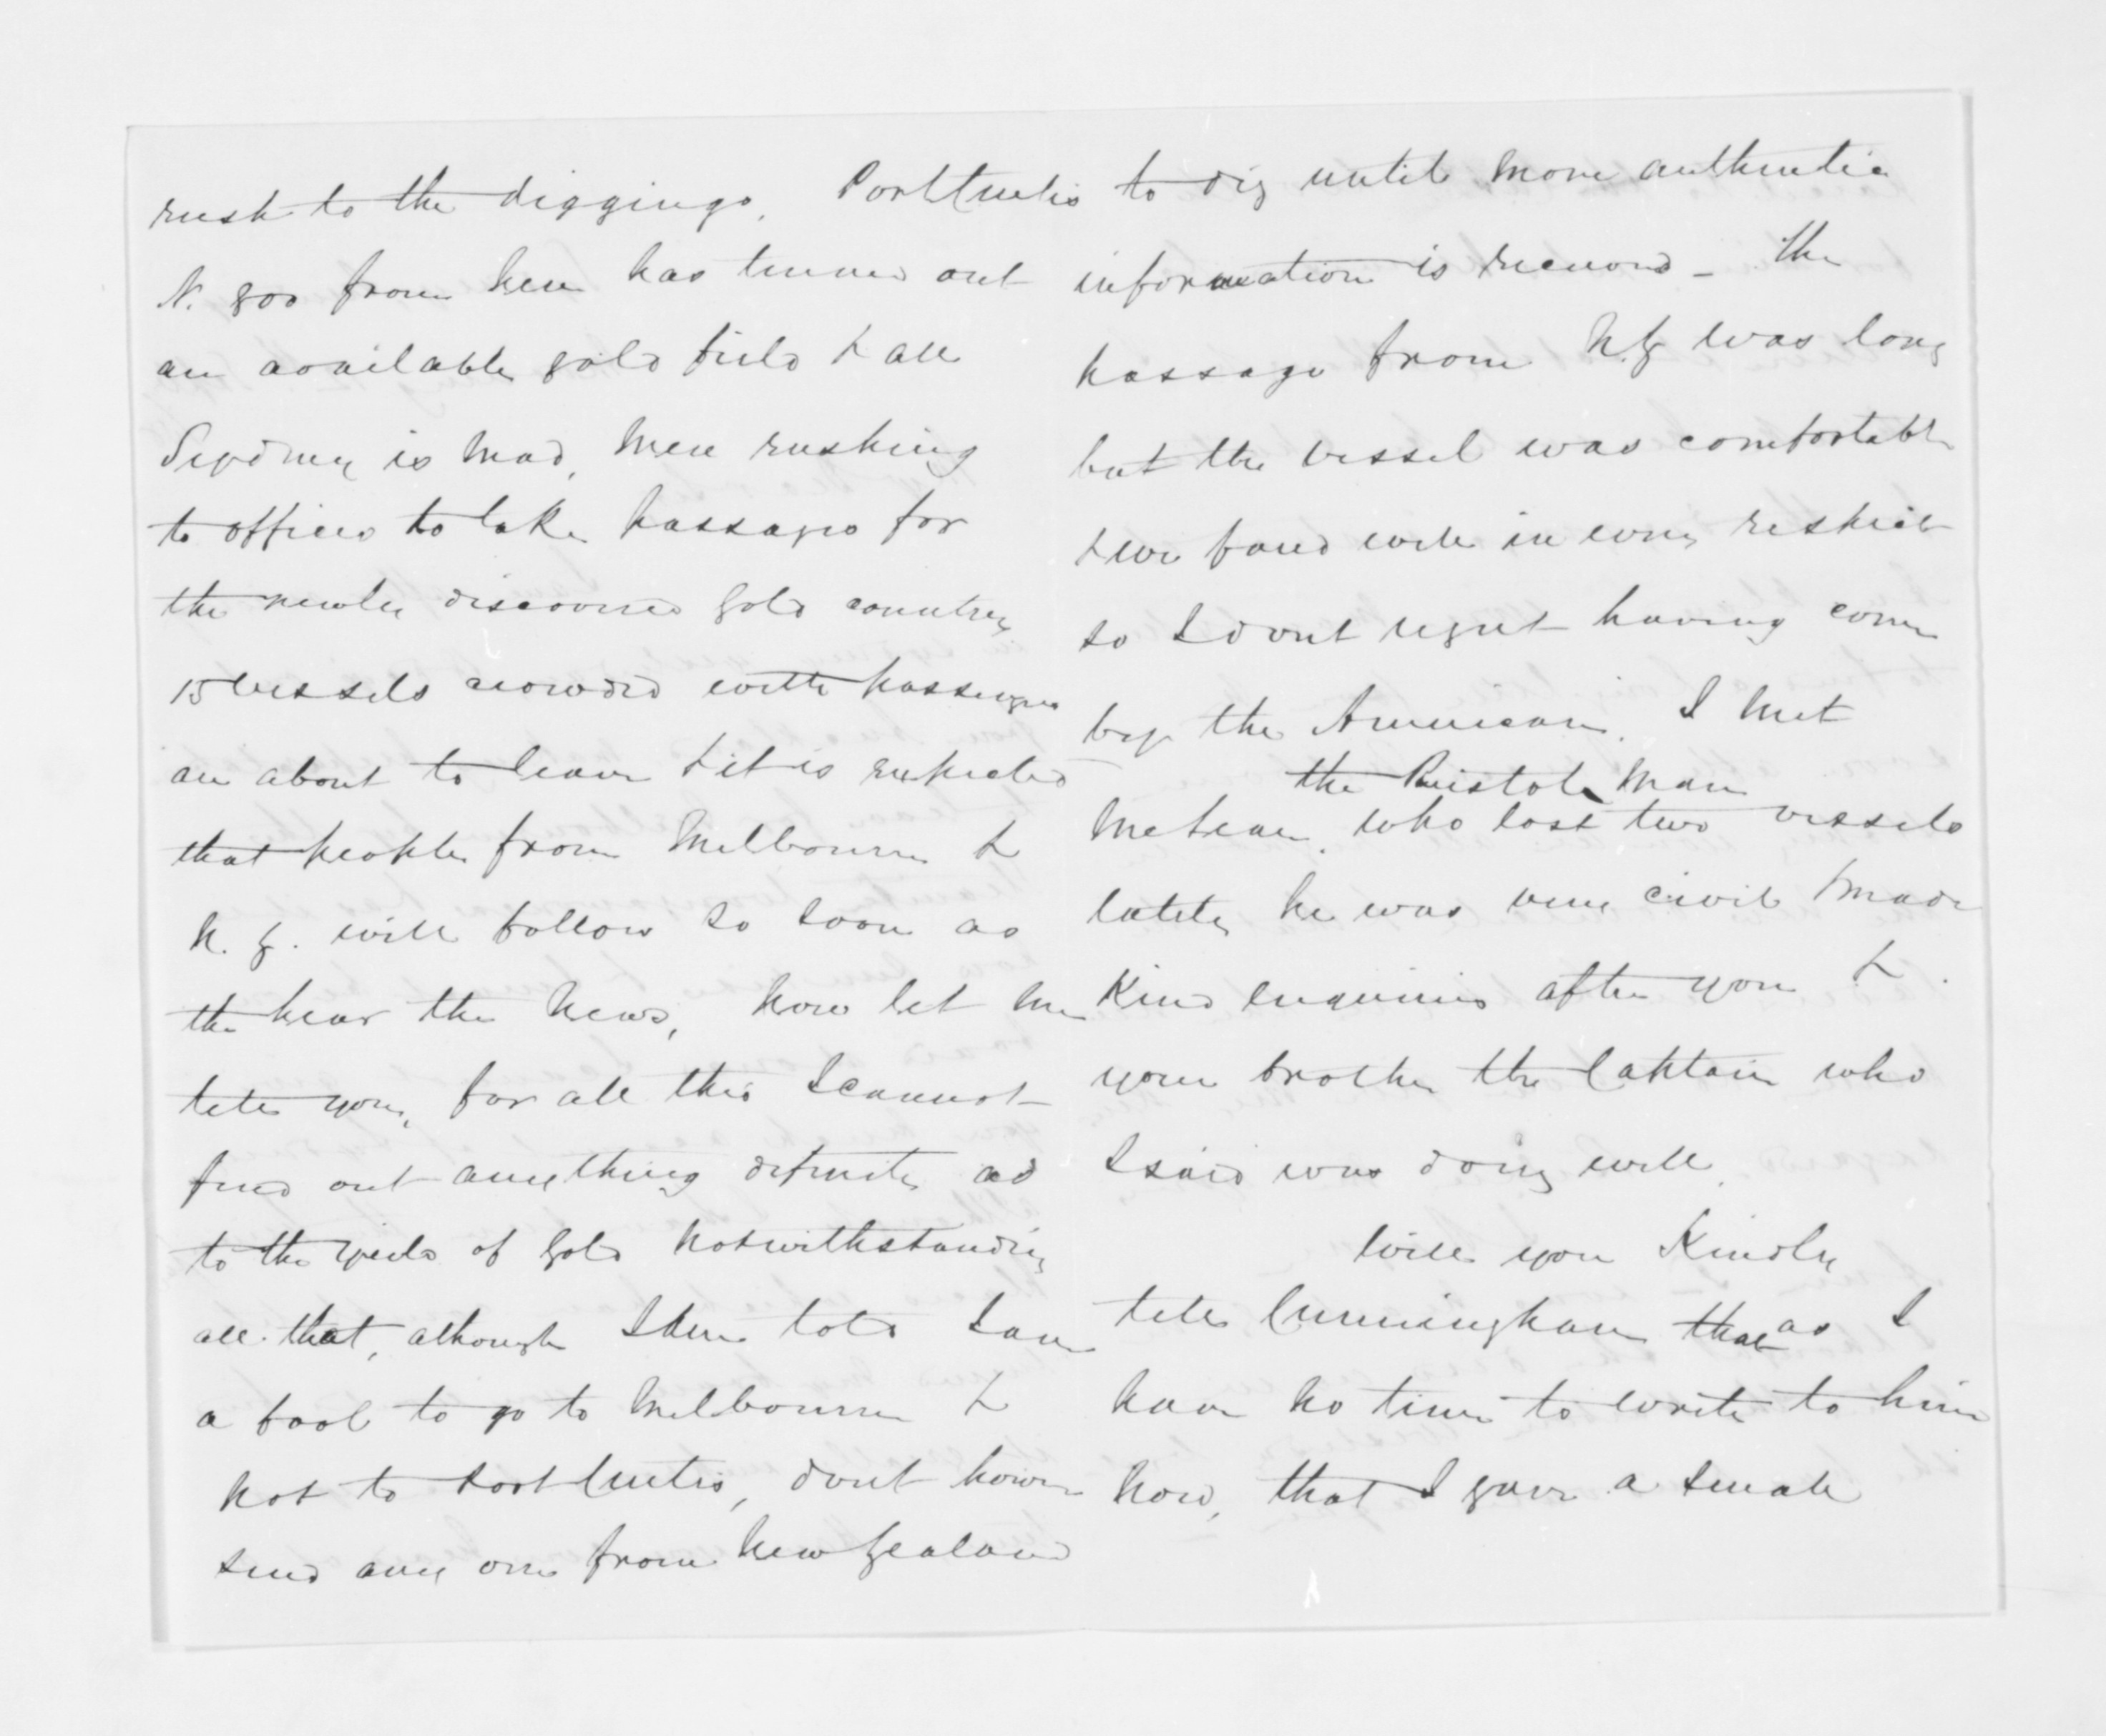 rush to the diggings. Port Curtis
N. 800 from here has turned out
an available gold field & all
Sydney is mad, men rushing
to offices to take passages for
the newly discovered gold country
15 vessels crowded with passengers
are about to leave & it is expected
that people from Melbourne &
N. Z. will follow so soon as
the hear the news, now let me
tell you, for all this I cannot
find out anything definite as
to the yield of gold notwithstanding
all that, although I been told I am
a fool to go to Melbourne &
not to Port Curtis, dont however
send any one from New Zealand
to dig until more authentic
information is received - The
passage from N.Z was long
but the vessel was comfortable
& we fared well in every respect
so I dont regret having come
by the American. I met
the Pistol man
McLean, who lost two vessels
lately he was very civil & made
kind enquiries after you &
your brother the Captain who
I said was doing well.
Will you kindly
tell Cunningham that as I
have no time to write to him
now, that I gave a small